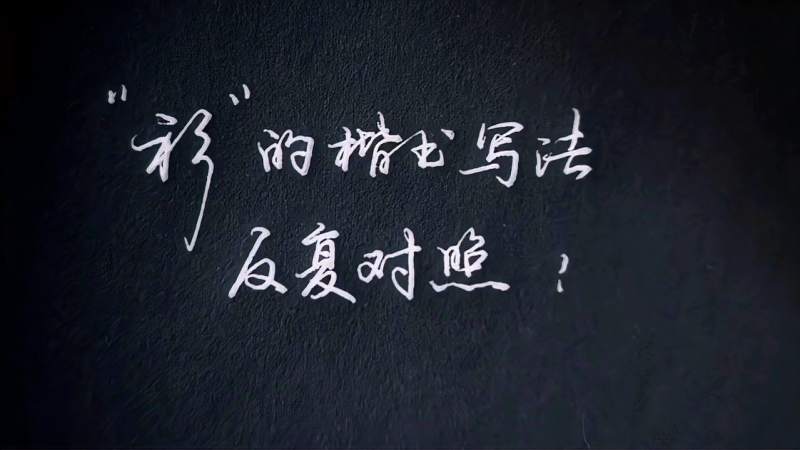 “衫”的楷书写法
反复对照！